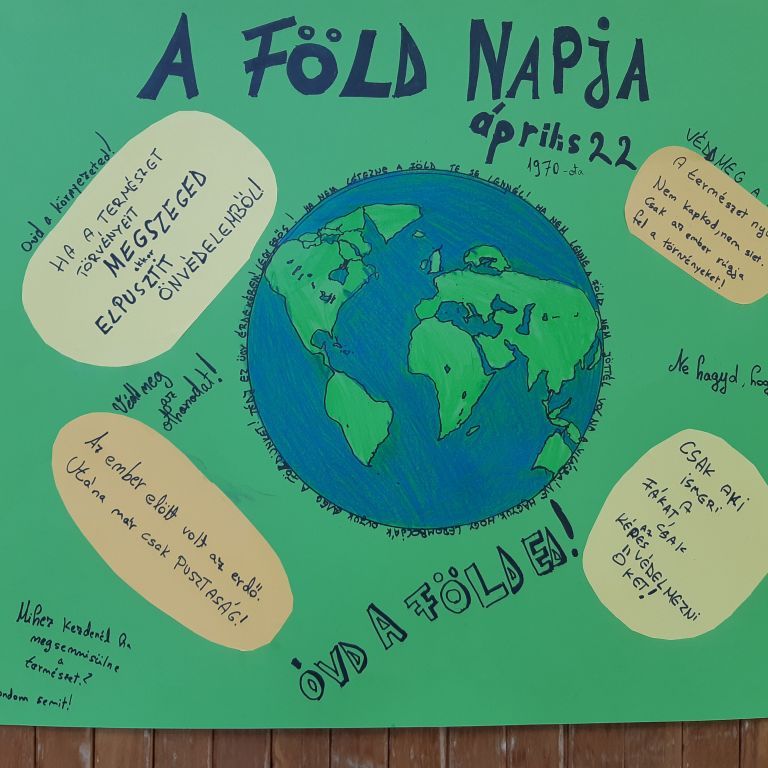 A FÖLD NAPJA
április 22
1970-óta
Óvd a környezeted!
HA A TERMÉSZET
TÖRVÉNYEIT
MEGSZEGED
akkor
ELPUSZTÍT
ÖNVÉDELEMBŐL!
VÉDD MEG A
A természet
Nem kapkod, nem siet.
Csak az ember rúgja
fel a törvényeket!
HA NEM LÉTEZNE A FÖLD TE SE LENNÉL! HA NEM LENNE A FÖLD NEM JÖTTÉL VOLNA A VILÁGRA! NE HAGYJUK HOGY
A FÖLDÜNKET! EZ ÜGY ÉRDEKÉBEN!
Védd meg
az
otthonodat!
Ne hagyd,
Az ember előtt volt az erdő.
Utána már csak PUSZTASÁG!
CSAK AKI
ISMERI
FÁKAT, A
AZ CSAK
KÉPES
VÉDELMEZNI
ŐKET!
ÓVD A FÖLDED!
Mihez kezdenél ha
megsemmisülne
a
természet?
semit!